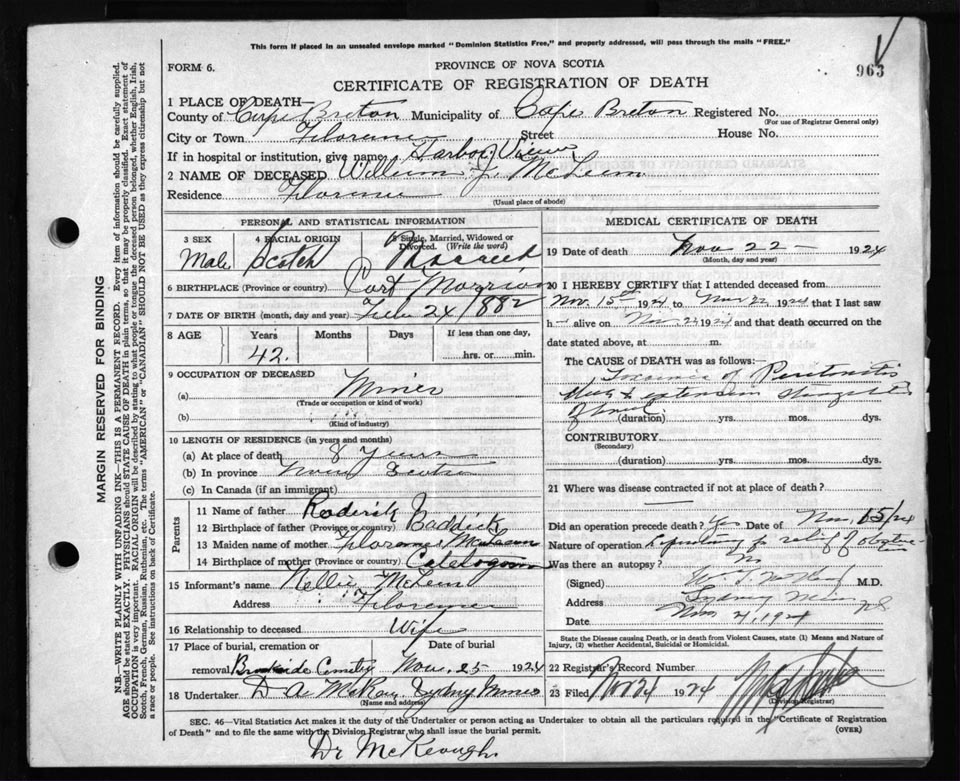 This form if placed in an unsealed envelope marked "Dominion Statistics Free," and properly addressed, will pass through the mails "FREE."
963
FORM 6.
PROVINCE OF NOVA SCOTIA
CERTIFICATE OF REGISTRATION OF DEATH
1 PLACE OF DEATH—
County of Cape Breton Municipality of Cape Breton Registered No.
(For use of Registrar General only)
City or Town Florence Street House No.
If in hospital or institution, give name Harbor View
2 NAME OF DECEASED William J. McLean
Residence Florence
(Usual place of abode)
PERSONAL AND STATISTICAL INFORMATION
3 SEX 4 RACIAL ORIGIN 5 Single, Married, Widowed or Divorced. (Write the word)
Male Scotch Married
6 BIRTHPLACE (Province or country) Port Morrien
7 DATE OF BIRTH (month, day and year) Feb 24 1882
8 AGE Years Months Days If less than one day,
42. hrs. or min.
9 OCCUPATION OF DECEASED
(a) Miner
(Trade or occupation or kind of work)
(b)
(Kind of industry)
10 LENGTH OF RESIDENCE (in years and months)
(a) At place of death 8 Years
(b) In province Nova Scotia
(c) In Canada (if an immigrant)
Parents
11 Name of father Roderick
12 Birthplace of father (Province or country) Baddick
13 Maiden name of mother Florence McLean
14 Birthplace of mother (Province or country) Catalogone
15 Informant's name Nellie McLean
Address Florence
16 Relationship to deceased Wife
17 Place of burial, cremation or removal Date of burial
Brookside Cemetry Nov. 25 1924
18 Undertaker D A McKay, Sydney Mines
(Name and address)
MEDICAL CERTIFICATE OF DEATH
19 Date of death Nov 22 — 1924
(Month, day and year)
20 I HEREBY CERTIFY that I attended deceased from
Nov. 15th 1924 to Nov 22 1924 that I last saw
h— alive on Nov. 22 1924 and that death occurred on the
date stated above, at m.
The CAUSE OF DEATH was as follows:
Toxaemia of Peritonitis
of bowel
(duration) yrs. mos. dys.
CONTRIBUTORY
(Secondary)
(duration) yrs. mos. dys.
21 Where was disease contracted if not at place of death?
Did an operation precede death? Yes Date of Nov. 15/24
Nature of operation for relief of obstruction
Was there an autopsy? no
(Signed) M.D.
Address Sydney Mines NS
Date 1924
State the Disease causing Death, or in death from Violent Causes, state (1) Means and Nature of Injury, (2) whether Accidental, Suicidal or Homicidal.
22 Registrar's Record Number
23 Filed Nov 24 1924
(Division Registrar)
SEC. 46—Vital Statistics Act makes it the duty of the Undertaker or person acting as Undertaker to obtain all the particulars required in the "Certificate of Registration
of Death" and to file the same with the Division Registrar who shall issue the burial permit.
(OVER)
Dr McKeough
MARGIN RESERVED FOR BINDING
N.B.—WRITE PLAINLY WITH UNFADING INK—THIS IS A PERMANENT RECORD. Every item of information should be carefully supplied.
AGE should be stated EXACTLY. PHYSICIANS should STATE CAUSE OF DEATH in plain terms, so that it may be properly classified. Exact statement of
OCCUPATION is very important. RACIAL ORIGIN will be described by stating to what people or tongue the deceased person belonged, whether English, Irish,
Scotch, French, German, Russian, Ruthenian, etc. The terms "AMERICAN" or "CANADIAN" SHOULD NOT BE USED as they express citizenship but not
a race or people. See instructions on back of Certificate.